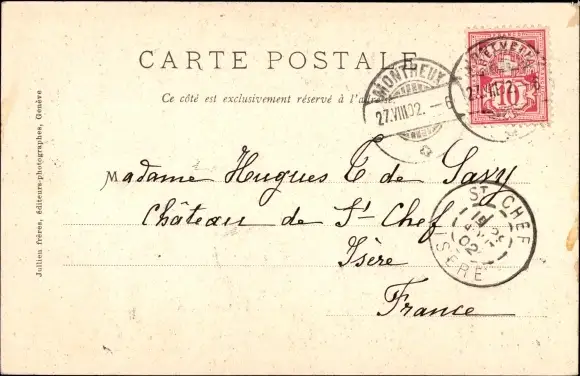 CARTE POSTALE
Ce côté est exclusivement réservé à l'adresse
HELVETIA
10
MONTREUX
27.VIII.02.
MONTREUX
27.VIII.02.
Madame Hugues de Savy
Château de St Chef
Isère
France
ST CHEF
02
ISÈRE
Jullien frères, éditeurs-photographes, Genève